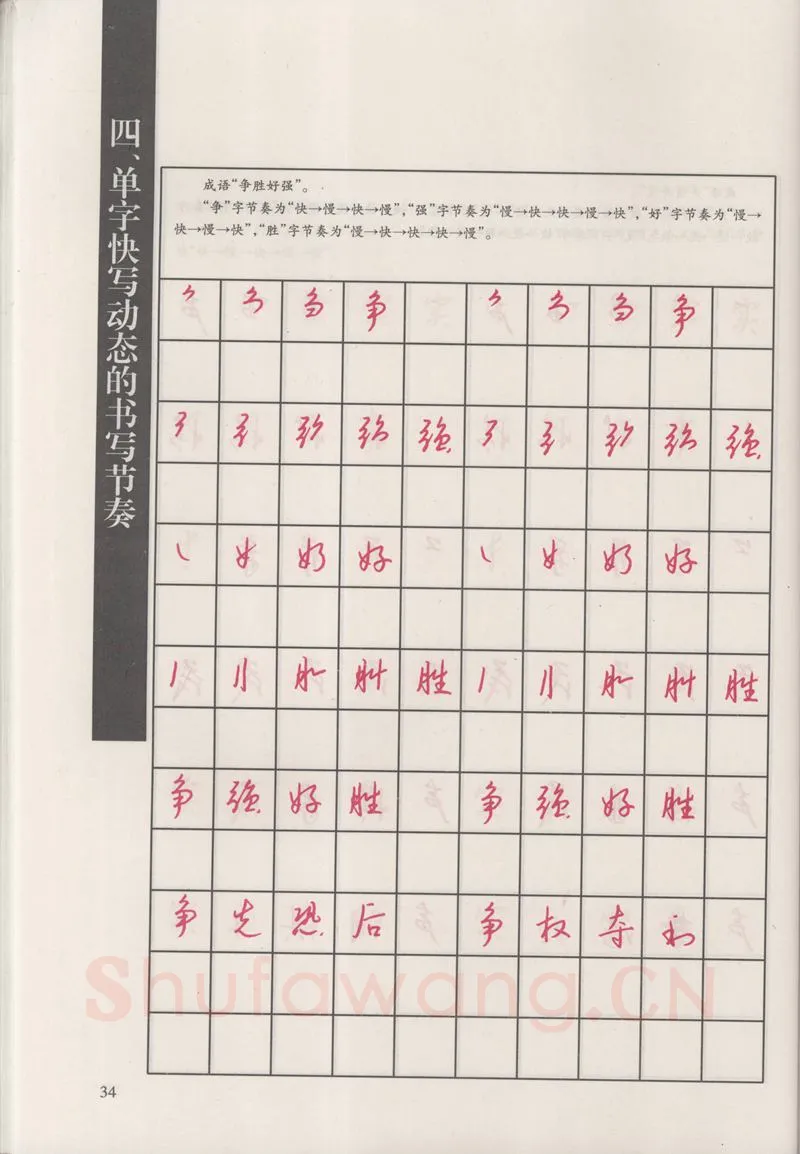 四、单字快写动态的书写节奏
成语“争胜好强”。
“争”字节奏为“快→慢→快→慢”,“强”字节奏为“慢→快→快→慢→快”,“好”字节奏为“慢→
快→慢→快”,“胜”字节奏为“慢→快→快→快→慢”。
争 争
强 强
好 好
胜 胜
争强好胜 争强好胜
争先恐后 争权夺利
Shufawang.CN
34